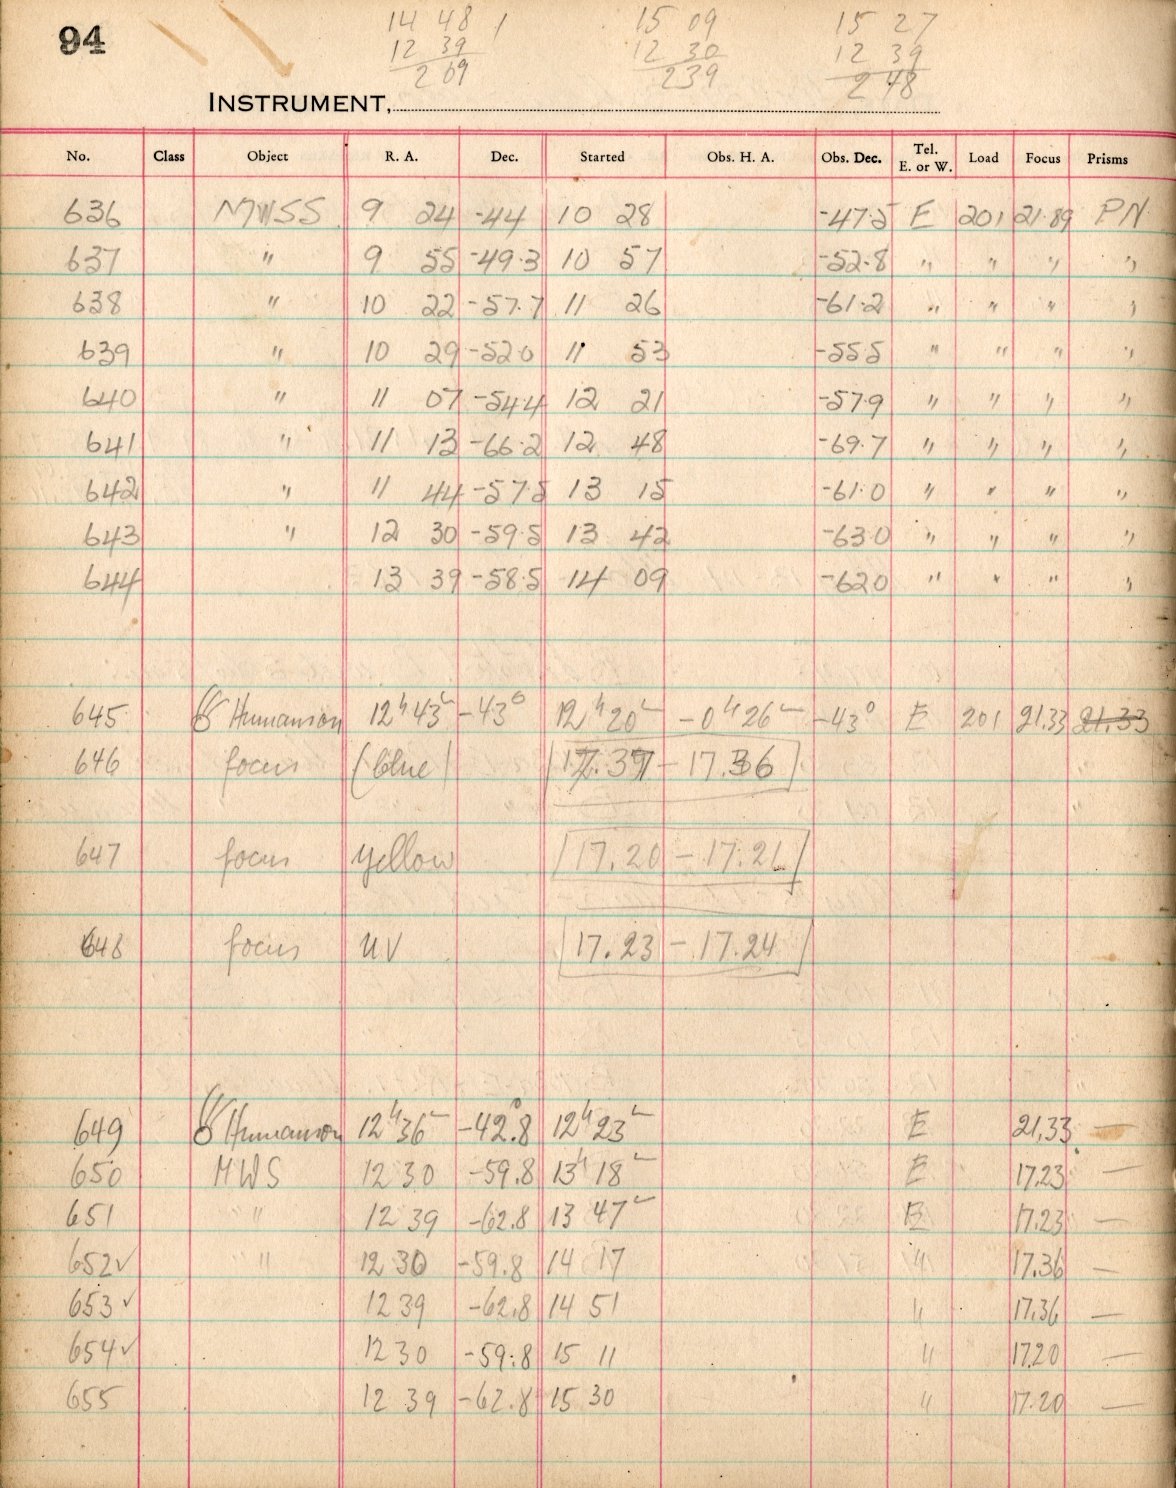 94
14 48 1 15 09 15 27
12 39 12 30 12 39
2 09 2 39 2 48
INSTRUMENT,
No. Class Object R. A. Dec. Started Obs. H. A. Obs. Dec. Tel. E. or W. Load Focus Prisms
636 MWSS 9 24 -44 10 28 -47.5 E 201 21.89 PN
637 " 9 55 -49.3 10 57 -52.8 " " " "
638 " 10 22 -57.7 11 26 -61.2 " " " "
639 " 10 29 -52.0 11 53 -55.5 " " " "
640 " 11 07 -54.4 12 21 -57.9 " " " "
641 " 11 13 -66.2 12 48 -69.7 " " " "
642 " 11 44 -57.5 13 15 -61.0 " " " "
643 " 12 30 -59.5 13 42 -63.0 " " " "
644 13 39 -58.5 14 09 -62.0 " " " "
645 Humanson 12h43m -43° 12h20m -0h26m -43° E 201 21.33 21.33
646 focus (blue) 17.37 - 17.36
647 focus yellow 17.20 - 17.21
648 focus UV 17.23 - 17.24
649 Humanson 12h36m -42.8 12h23m E 21.33 —
650 MWS 12 30 -59.8 13h18m E 17.23 —
651 " 12 39 -62.8 13 47m E 17.23 —
652✓ " 12 30 -59.8 14 17 " 17.36 —
653✓ 12 39 -62.8 14 51 " 17.36 —
654✓ 12 30 -59.8 15 11 " 17.20 —
655 12 39 -62.8 15 30 " 17.20 —